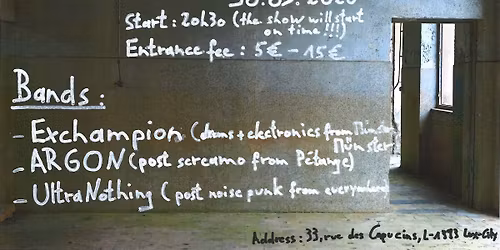 Start: 20h30 (the show will start
on time!!!)
Entrance fee: 5€ - 15€
Bands:
- Exchampion (drums + electronics from Münster
Münster
- ARGON (post screamo from Pétange)
- UltraNothing (post noise punk from everywhere)
Address: 33, rue des Capucins, L-1313 Lux-City